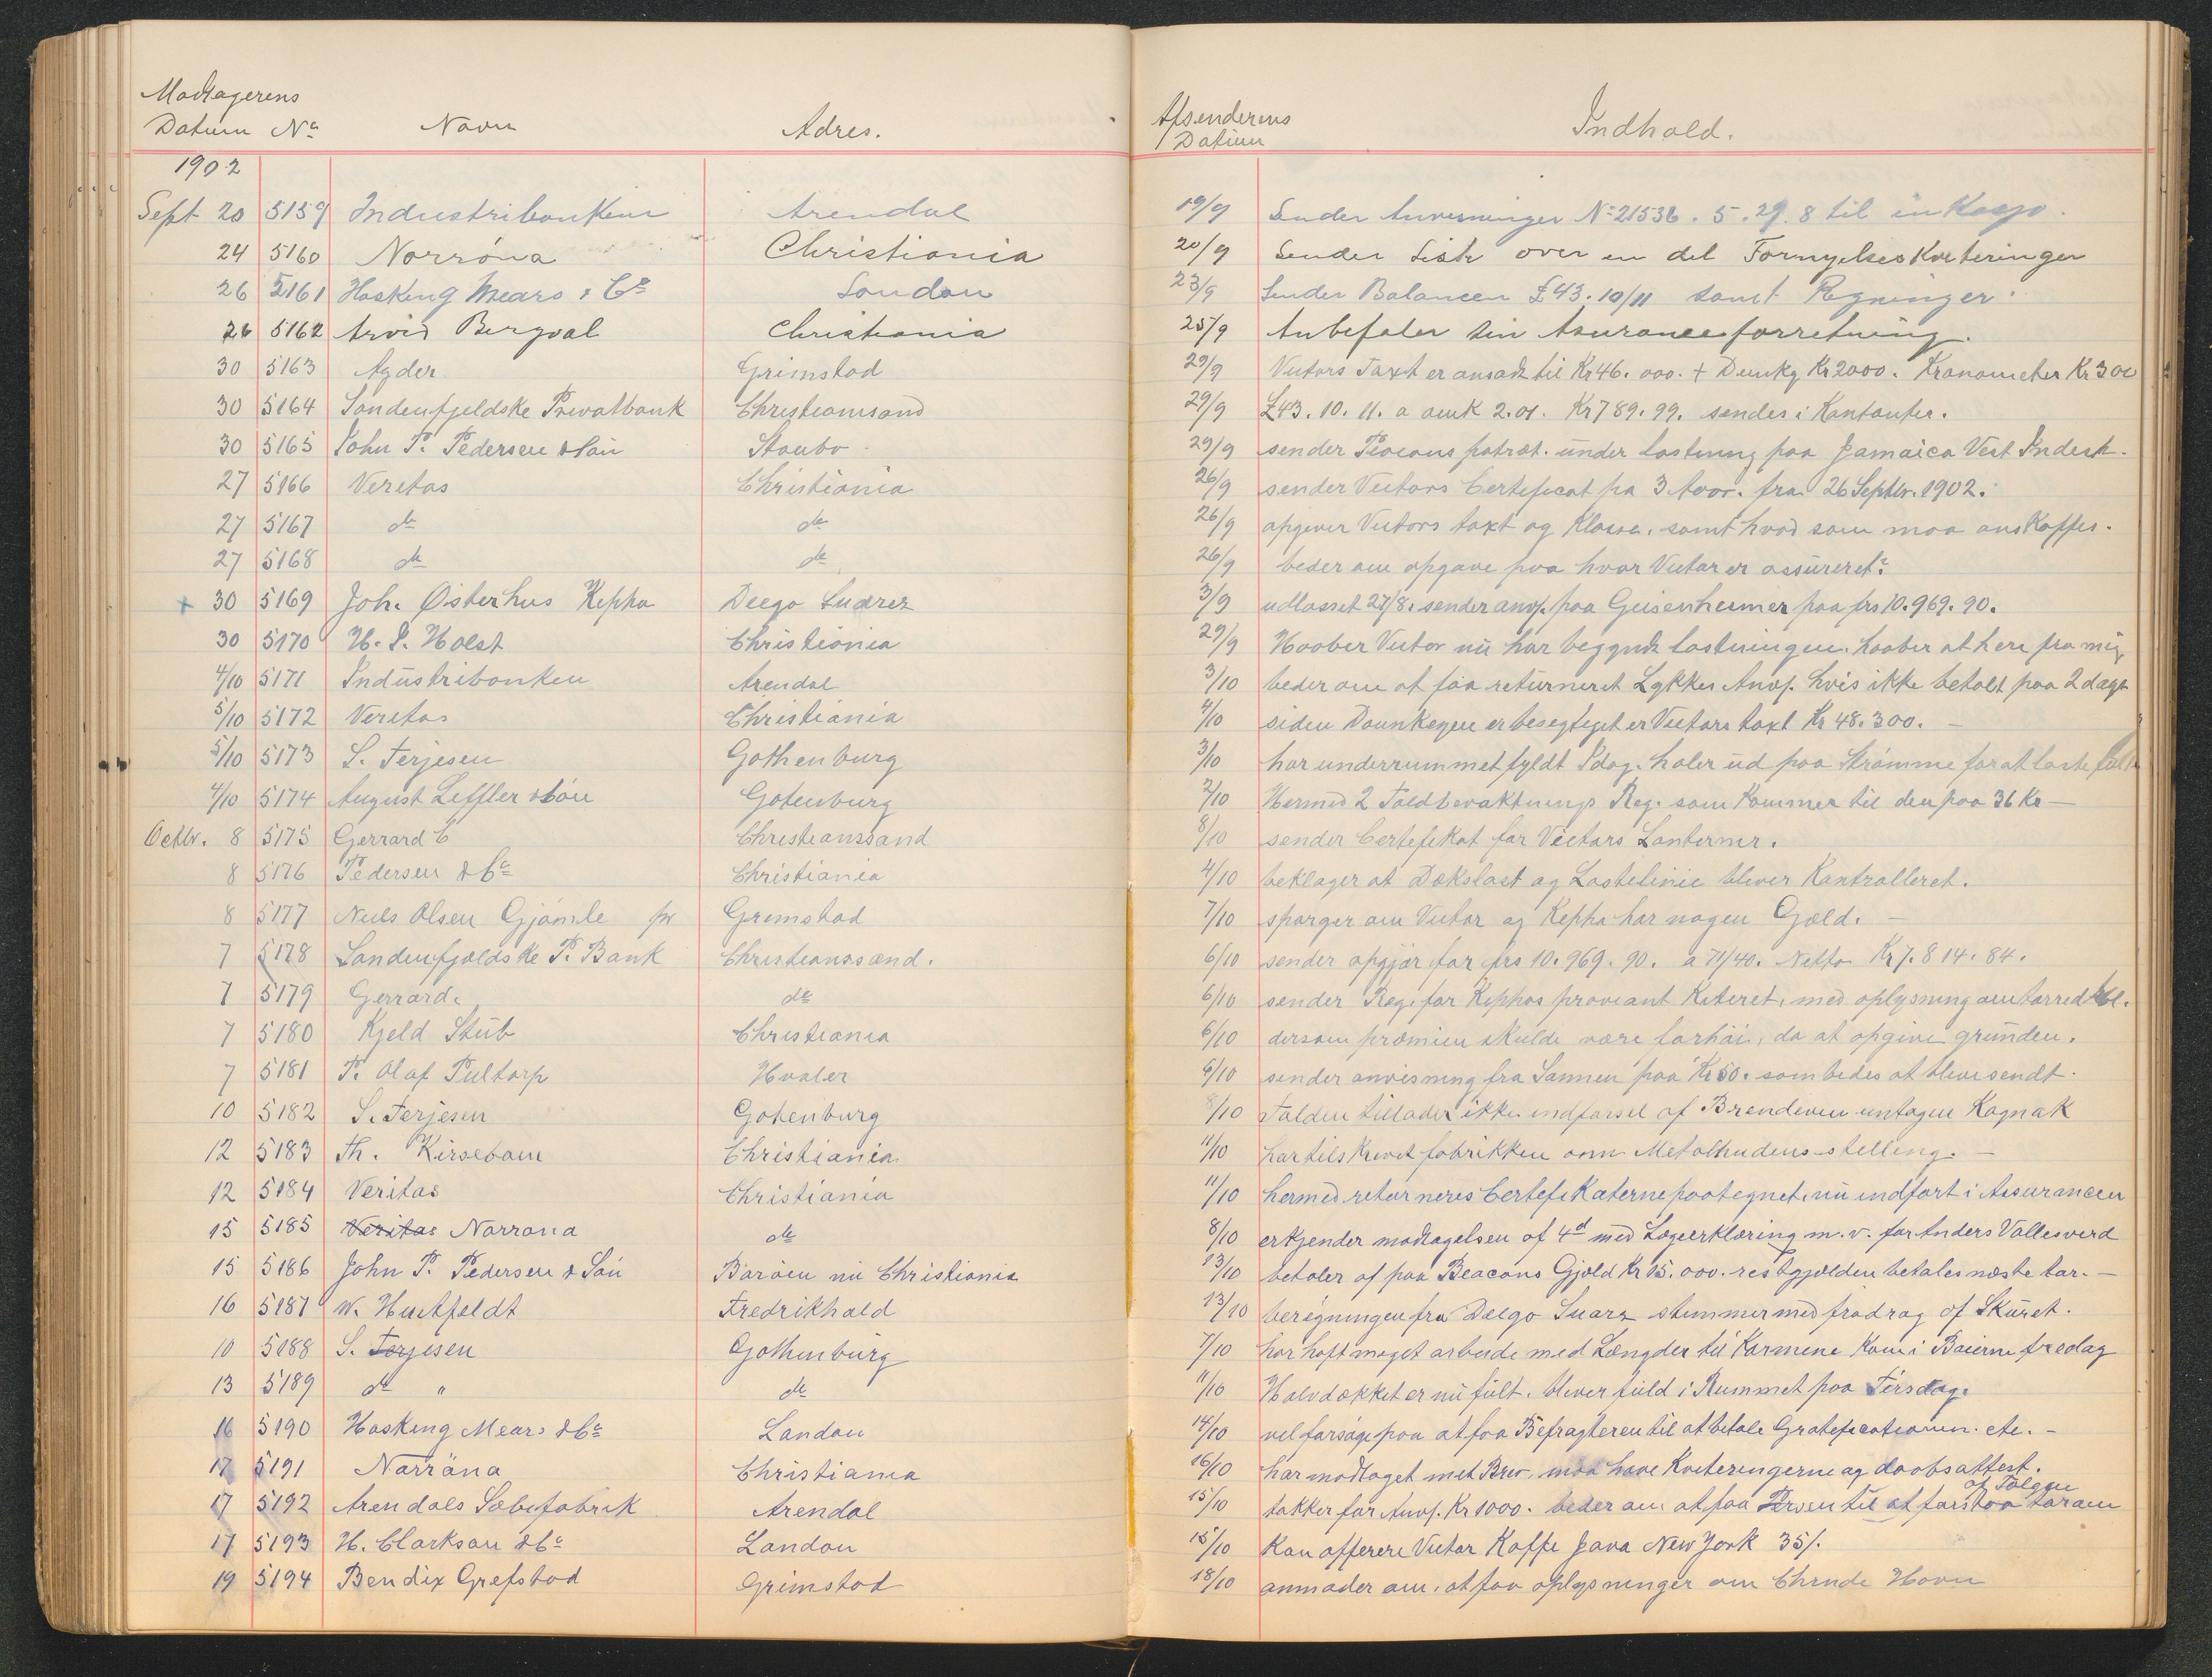 Modtagerens
Datum No Navn Adres. Afsenderens Datum Indhold.
1902
Sept 20 5159 Industribanken Arendal 19/9 Sender Anvisninger No 21536. 5. 29. 8 til inkasso.
24 5160 Norröna Christiania 20/9 Sender Liste over en del Fornyelses Kviteringer
26 5161 Hosking Mears & Co London 23/9 Sender Balancen £43. 10/11 samt Regninger.
26 5162 Arvid Bergval Christiania 25/9 Anbefaler sin Asuranceforretning.
30 5163 Agder Grimstad 29/9 Victors Taxt er ansadt til Kr 46. 000. + Dunky Kr 2000. Kranometer Kr 300
30 5164 Söndenfjeldske Privatbank Christiansand 29/9 £43. 10. 11. a 2.01. Kr 789. 99. sendes i Kontanter.
30 5165 John P. Pedersen & Sön Staubo 29/9 sender Beacons under lastning paa Jamaica Vest Indien.
27 5166 Veritas Christiania 26/9 sender Victors Certificat pa 3 Aar. fra 26 Septbr. 1902.
27 5167 do do 26/9 opgiver Victors taxt og Klasse, samt hvad som maa anskaffes.
27 5168 do do 26/9 beder om opgave paa hvor Victor er assureret.
+ 30 5169 Joh. Østerhus Kepha Diego Suarez 3/9 udlosset 27/8. sender anv. paa Geisenheimer paa frs 10.969.90.
30 5170 H. P. Holst Christiania 29/9 Haaber Victor nu har begyndt lastningen. haaber at höre fra mig
4/10 5171 Industribanken Arendal 3/10 beder om at faa returneret Lykkes Anvs. hvis ikke betalt paa 2 dage
5/10 5172 Veritas Christiania 4/10 siden Dounkeyen er besegtiget er Victors taxt Kr 48.300. –
5/10 5173 S. Terjesen Gothenburg 3/10 har underrummet fyldt Idag. haler ud paa Strömme for at laste fuldt
4/10 5174 August Leffler & Sön Gotenburg 2/10 Hermed 2 Toldbevaktnings Reg. som kommer til den paa 36 Kr –
Octbr. 8 5175 Gerrard C Christianssand 8/10 sender Certefikat for Victors Lanterner.
8 5176 Pedersen & Co Christiania 4/10 beklager at Dækslast og Lastelinie bliver Kontrolleret.
8 5177 Niels Olsen Gjömle pr Grimstad 7/10 spörger om Victor og Kepha har nogen Gjæld. –
7 5178 Söndenfjeldske P. Bank Christianssand. 6/10 sender opgjör for frs 10.969.90. a 71/40. Netto Kr 7.814.84.
7 5179 Gerrard. do 6/10 sender Reg. for Kephas proviant Kviteret, med oplysning om
7 5180 Kjeld Stub Christiania 6/10 dersom præmien skulde være forhöi, da at opgive grunden.
7 5181 P. Olaf Pultorp Hvaler 6/10 sender anvisning fra Sannen paa Kr 50. som bedes at blive sendt.
10 5182 S. Terjesen Gotenburg 8/10 Tolden tillader ikke indförsel af Brendeven untagen Kognak
12 5183 Th. Kirsebom Christiania 11/10 har tilskrevet fabrikken om Metalhudens stelling. –
12 5184 Veritas Christiania 11/10 hermed retorneres Certefikaterne paategnet, nu indfört i Assurancen
15 5185 Veritas Norröna do 8/10 erkjender modtagelsen af 4d med Lægeerklæring m.v. for Anders Vallesverd
15 5186 John P. Pedersen & Sön Baröen nu Christiania 13/10 betaler af paa Beacons Gjæld Kr 15.000. restgjælden betales næste tur. –
16 5187 W. Huitfeldt Fredrikhald 13/10 beregningen fra Deigo Suarz stemmer med fradrag of Skuret.
10 5188 S. Terjesen Gothenburg 7/10 har haft meget arbeide med Længder til Karmene Kom i Baierne fredag
13 5189 do " do 11/10 Halvdækket er nu fult. bliver fuld i Rummet paa Tirsdag.
16 5190 Hosking Mears & Co London 14/10 vil forsöge paa at faa Befragteren til at betale Gratificationen. etc. –
17 5191 Norröna Christiania 16/10 har modtaget mit Brev, maa have Kviteringerne og daabsattest.
17 5192 Arendals Sæbefabrik Arendal 15/10 takker for Anvs. Kr 1000. beder om at faa til at
17 5193 H. Clarkson & Co London 15/10 Kan offerere Victor Kaffe Java New York 35/.
19 5194 Bendix Grefstad Grimstad 18/10 anmoder om, at faa oplysninger om Havn